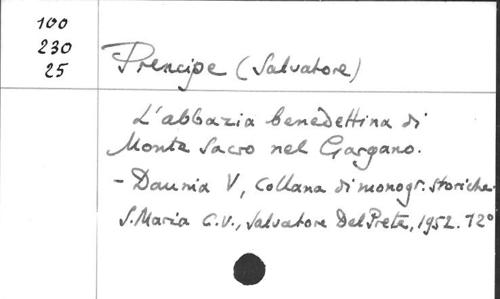 100
230
25
Prencipe (Salvatore)
L'abbazia benedettina di
Monte Sacro nel Gargano.
- Daunia V, Collana di monogr. storiche.
S. Maria C.V., Salvatore Del Prete, 1952. 12°